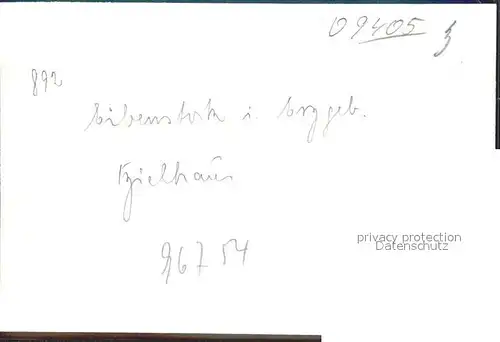 09405
892
Eibenstock i. Erzgeb.
96754
privacy protection
Datenschutz